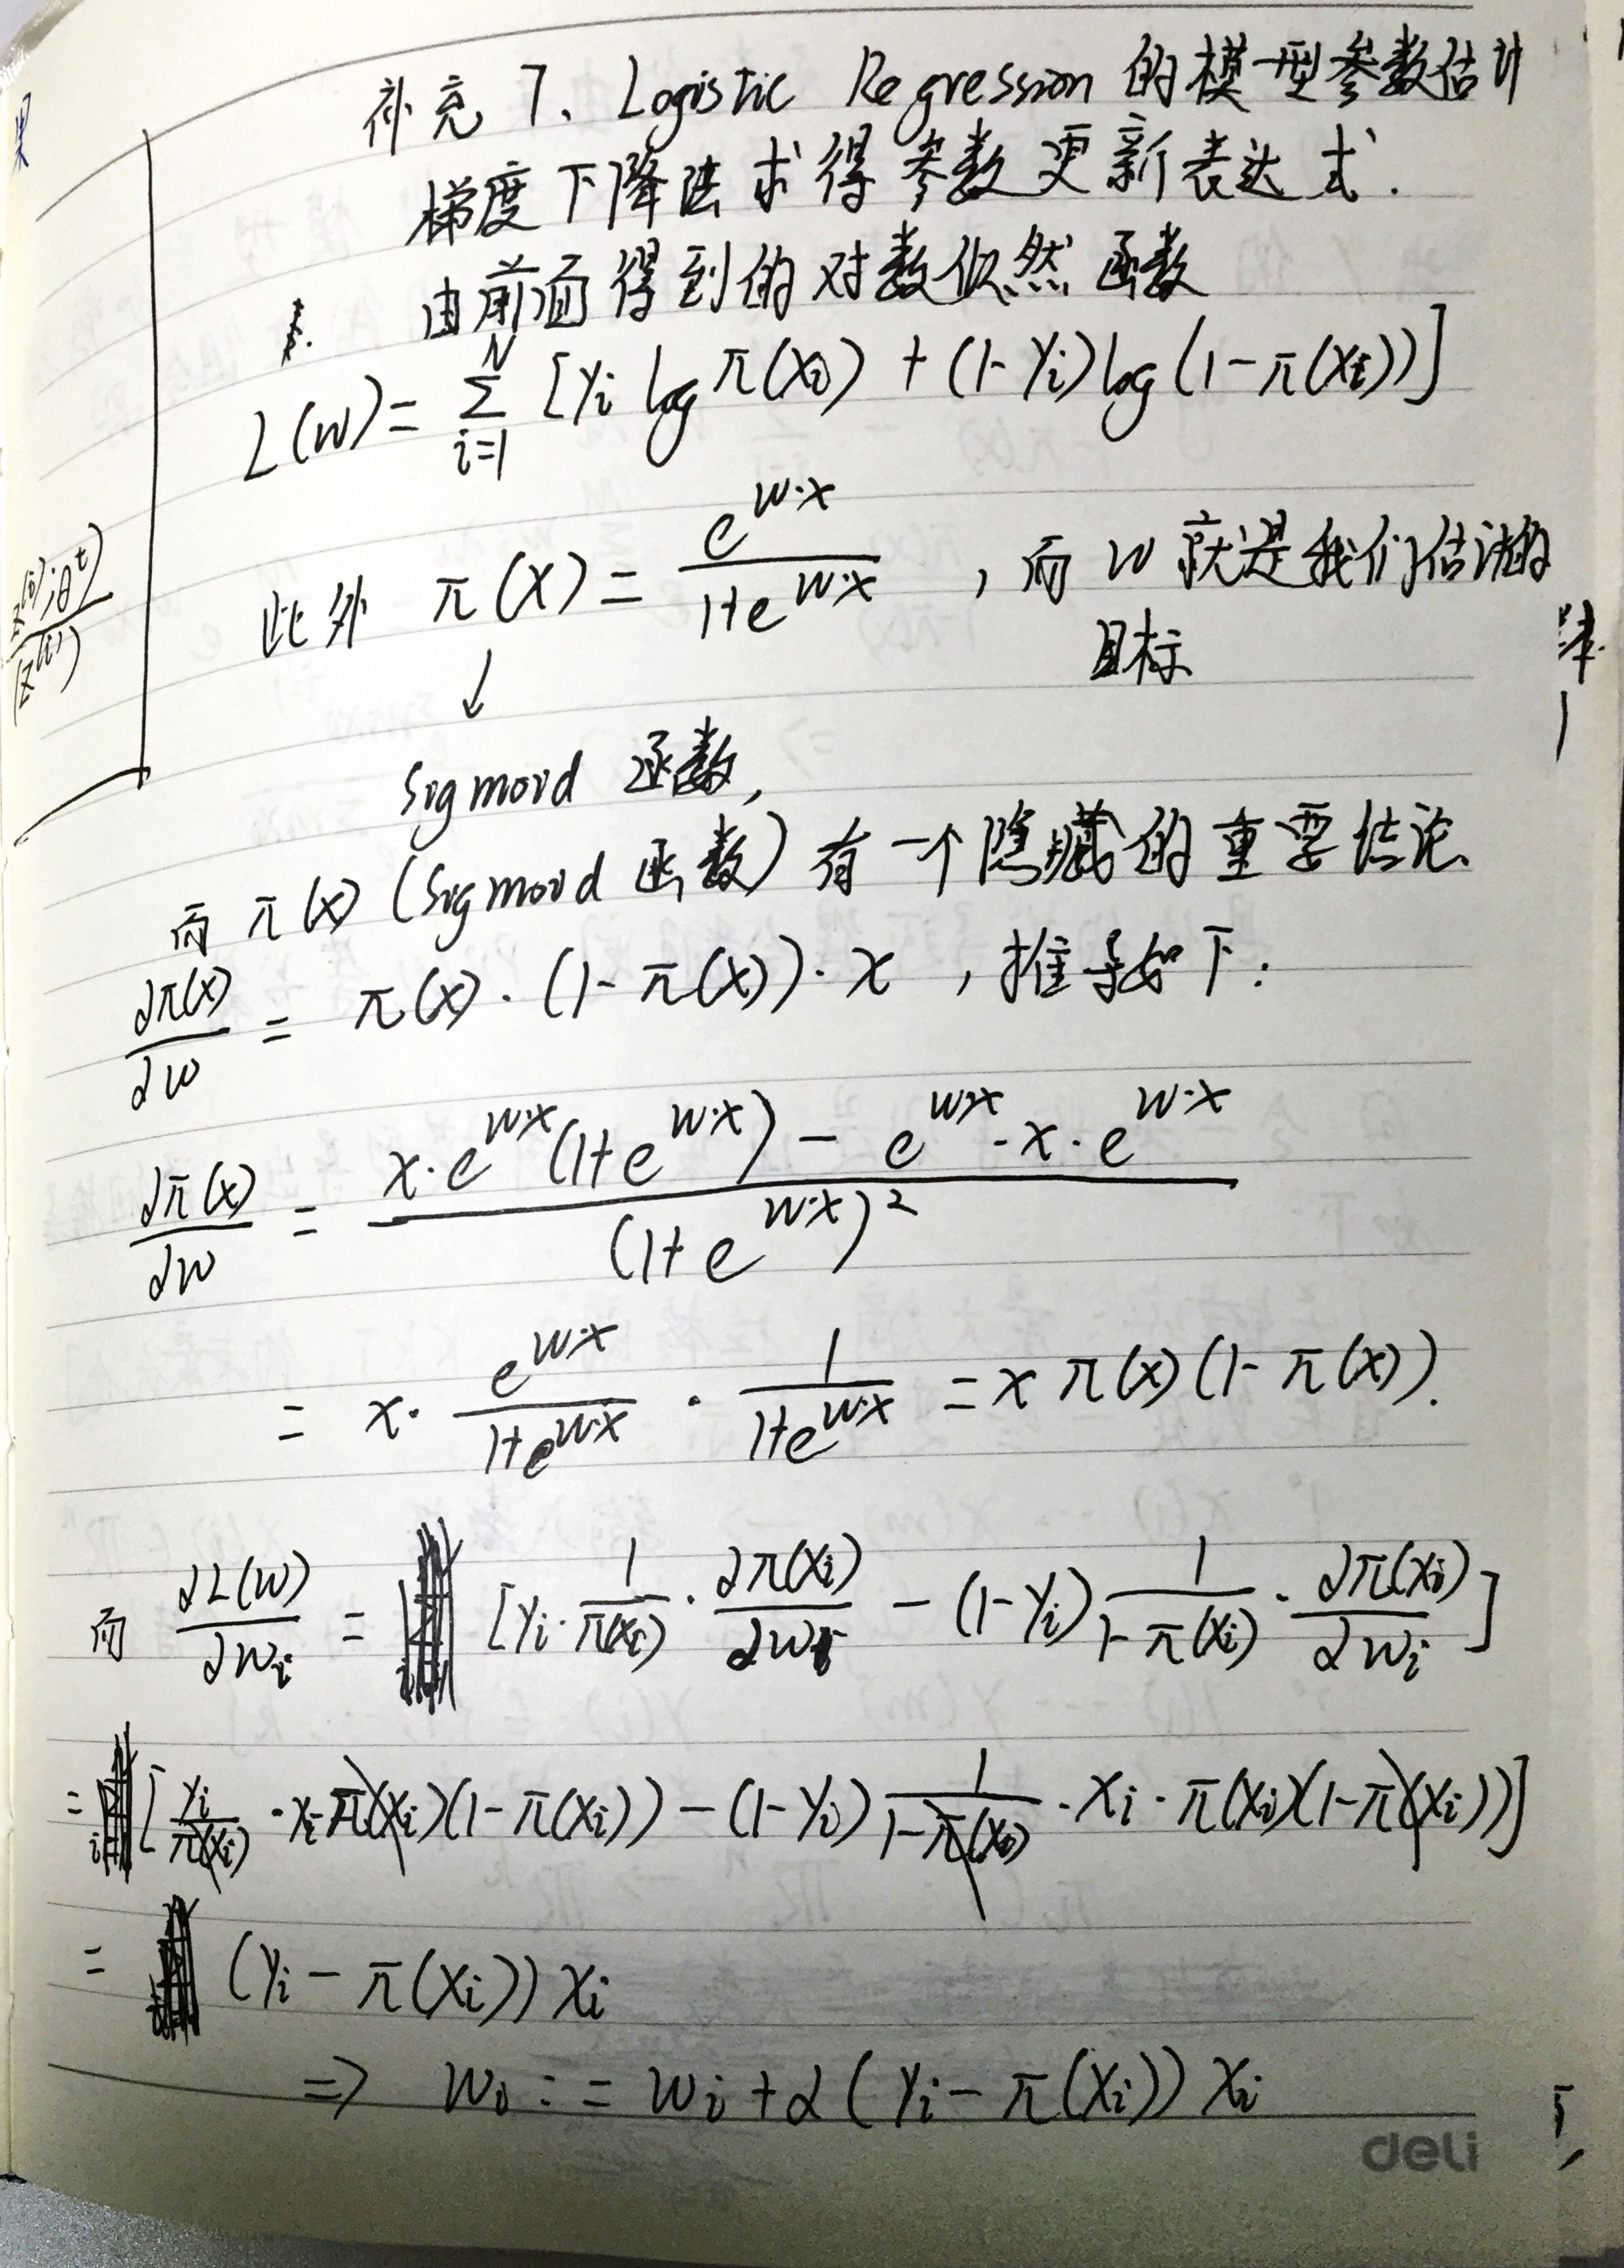 补充7、Logistic Regression 的模型参数估计
梯度下降法求得参数更新表达式.
由前面得到的对数似然函数
L(w) = \sum_{i=1}^{N} [y_i log π(x_i) + (1-y_i) log(1-π(x_i))]
此外 π(x) = \frac{e^{w·x}}{1+e^{w·x}} , 而 w 就是我们估计的
目标
↓
Sigmoid 函数,
而 π(x) (Sigmoid 函数) 有一个隐藏的重要结论、
\frac{∂π(x)}{∂w} = π(x)·(1-π(x))·x , 推导如下:
\frac{∂π(x)}{∂w} = \frac{x·e^{w·x}(1+e^{w·x}) - e^{w·x}·x·e^{w·x}}{(1+e^{w·x})^2}
= x·\frac{e^{w·x}}{1+e^{w·x}}·\frac{1}{1+e^{w·x}} = x π(x)(1-π(x)).
而 \frac{∂L(w)}{∂w_i} = [y_i·\frac{1}{π(x_i)}·\frac{∂π(x_i)}{∂w_i} - (1-y_i)\frac{1}{1-π(x_i)}·\frac{∂π(x_i)}{∂w_i}]
= [\frac{y_i}{π(x_i)}·x_i π(x_i)(1-π(x_i)) - (1-y_i)\frac{1}{1-π(x_i)}·x_i·π(x_i)(1-π(x_i))]
= (y_i - π(x_i)) x_i
⇒ w_i := w_i + α(y_i - π(x_i)) x_i
deli